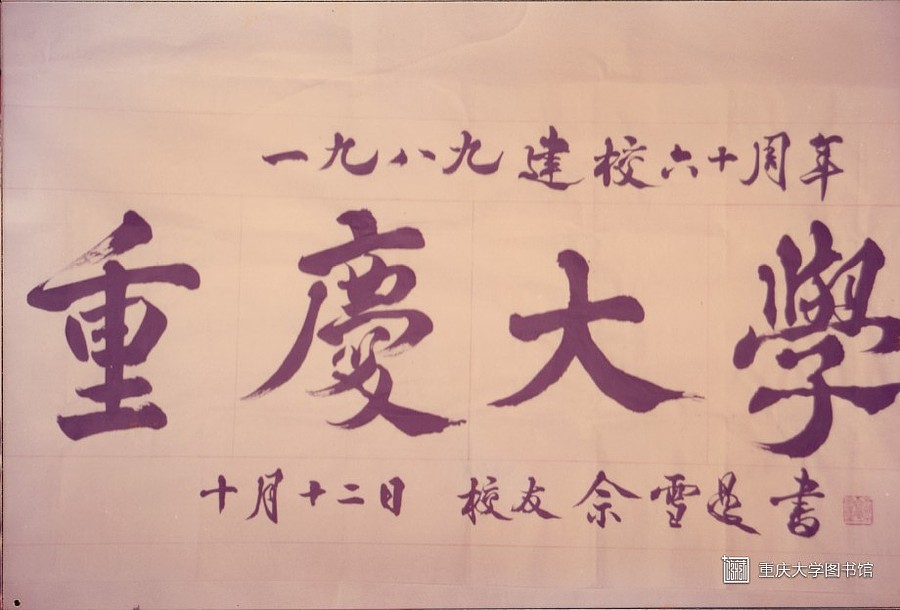 一九八九建校六十周年
重慶大學
十月十二日 校友余雪曼书
重庆大学图书馆